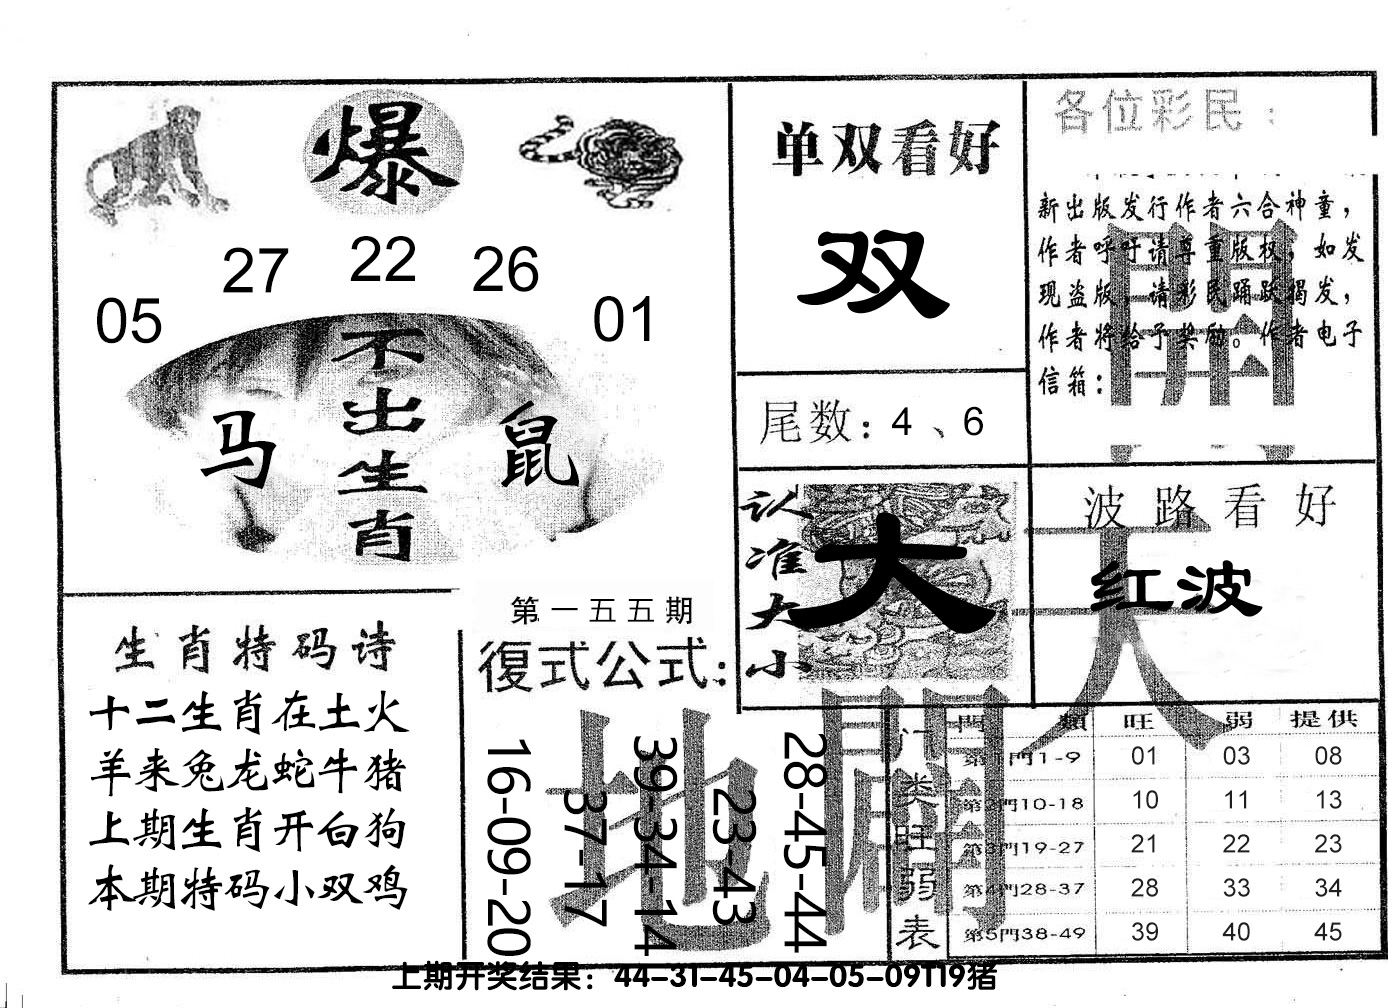 爆
05 27 22 26 01
不出生肖
马 鼠
单双看好
双
尾数：4、6
各位彩民：
新出版发行作者六合神童，
作者呼吁请尊重版权，如发
现盗版，请彩民踊跃揭发，
作者将给予奖励。作者电子
信箱：
開
认准大小
大
波路看好
红波
天
生肖特码诗
十二生肖在土火
羊来兔龙蛇牛猪
上期生肖开白狗
本期特码小双鸡
第一五五期
復式公式：
16-09-20
37-17
39-34-14
23-43
28-45-44
地 開
门类旺弱表
門類 旺 弱 提供
第1門1-9 01 03 08
第2門10-18 10 11 13
第3門19-27 21 22 23
第4門28-37 28 33 34
第5門38-49 39 40 45
上期开奖结果：44-31-45-04-05-09T19猪